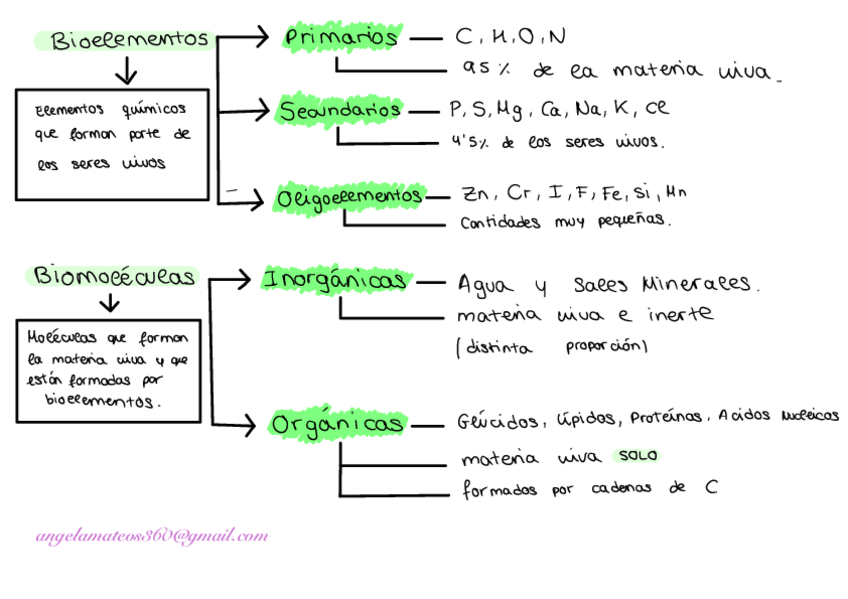 Bioelementos
Primarios
C, H, O, N
95 % de la materia viva.
Elementos químicos
que forman parte de
los seres vivos
Secundarios
P, S, Mg, Ca, Na, K, Cl
4'5% de los seres vivos.
Oligoelementos
Zn, Cr, I, F, Fe, Si, Mn
Cantidades muy pequeñas.
Biomoléculas
Inorgánicas
Agua y Sales Minerales.
materia viva e inerte
(distinta proporción)
Moléculas que forman
la materia viva y que
están formadas por
bioelementos.
Orgánicas
Glúcidos, Lípidos, Proteínas, Acidos Nucleicos
materia viva SOLO
formados por cadenas de C
angelamateos360@gmail.com